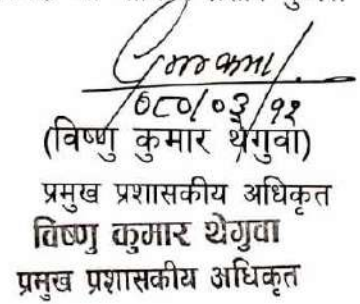 ०८०/०३/१२
(विष्णु कुमार थेगुवा)
प्रमुख प्रशासकीय अधिकृत
विष्णु कुमार थेगुवा
प्रमुख प्रशासकीय अधिकृत